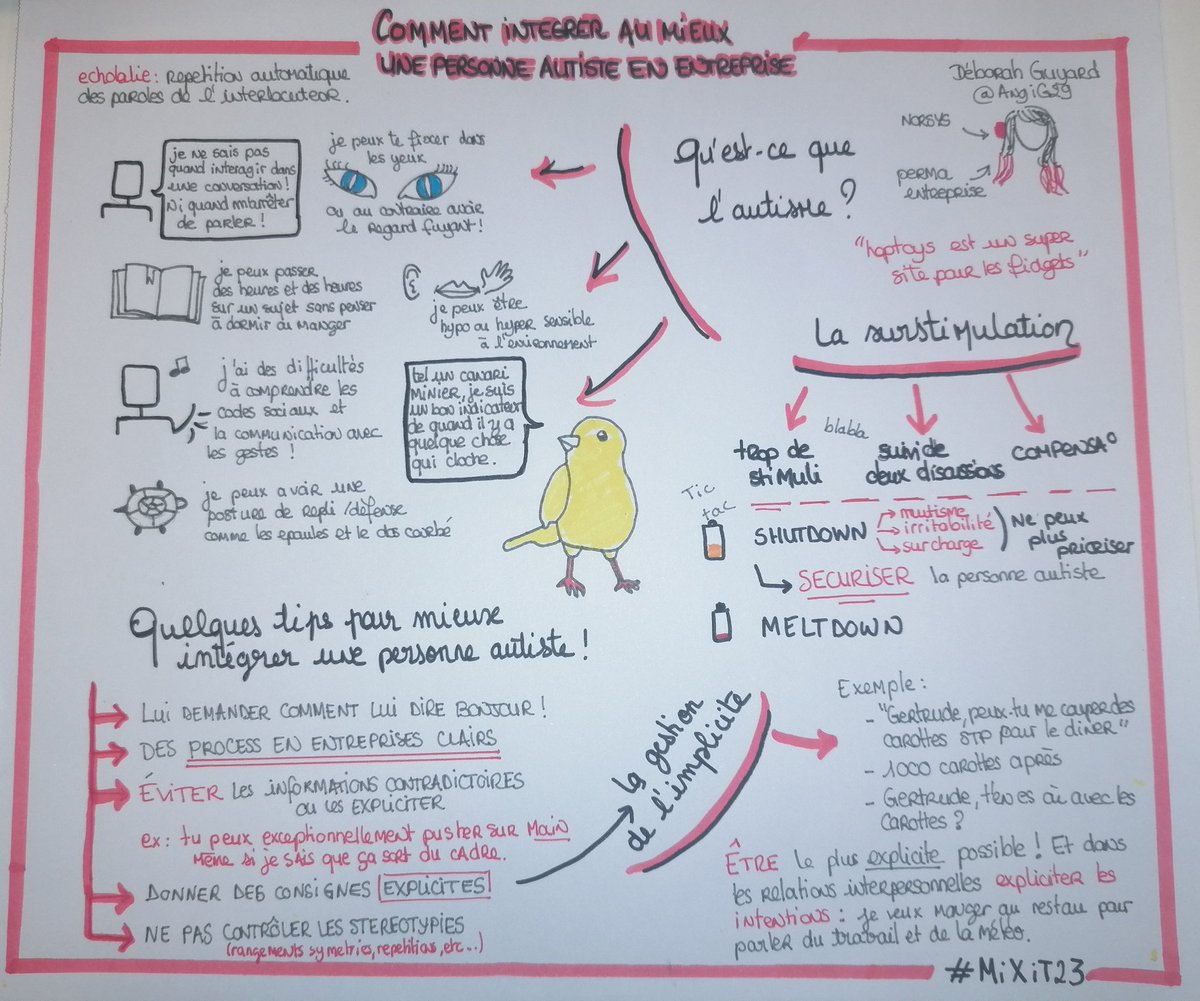 COMMENT INTEGRER AU MIEUX
UNE PERSONNE AUTISTE EN ENTREPRISE
echolalie: REPETITION AUTOMATIQUE
des paroles de l'interlocuteur.
Déborah Guyard
@AngiG29
NORSYS
perma
entreprise
je ne sais pas
quand interagir dans
une conversation!
Ni quand m'arrêter
de parler!
je peux te fixer dans
les yeux
ou au contraire avoir
le regard fuyant!
Qu'est-ce que
l'autisme?
"hoptoys est un super
site pour les fidgets"
je peux passer
des heures et des heures
sur un sujet sans penser
à dormir ou manger
je peux être
hypo ou hyper sensible
à l'environnement
j'ai des difficultés
à comprendre les
codes sociaux et
la communication avec
les gestes!
tel un canari
minier, je suis
un bon indicateur
de quand il y a
quelque chose
qui cloche.
je peux avoir une
posture de repli/défense
comme les epaules et le dos courbé
La surstimulation
trop de
stimuli
blabla
suivi de
deux discussions
COMPENSA°
Tic
tac
SHUTDOWN
mutisme
irritabilité
surcharge
Ne peux
plus
prioriser
SECURISER la personne autiste
MELTDOWN
Quelques tips pour mieux
intégrer une personne autiste!
LUI DEMANDER COMMENT LUI DIRE BONJOUR!
DES PROCESS EN ENTREPRISES CLAIRS
ÉVITER LES INFORMATIONS CONTRADICTOIRES
OU LES EXPLICITER
ex: tu peux exceptionnellement pusher sur Main
même si je sais que ça sort du cadre.
DONNER DES CONSIGNES EXPLICITES
NE PAS CONTRÔLER LES STEREOTYPIES
(rangements symetries, repetitions, etc...)
la gestion
de l'implicite
Exemple:
- "Gertrude, peux-tu me couper des
carottes STP pour le diner"
- 1000 carottes après
- Gertrude, t'en es où avec les
carottes?
ÊTRE le plus explicite possible! Et dans
les relations interpersonnelles expliciter les
intentions: je veux manger au restau pour
parler du travail et de la météo.
#MiXiT23